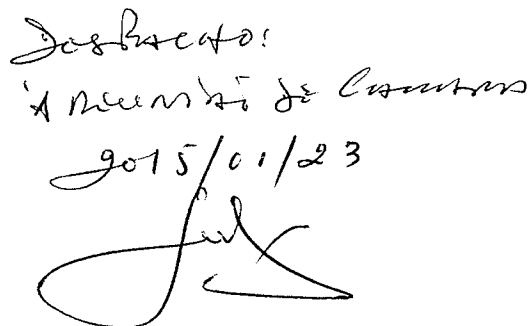 Despacho:
À reunião de Câmara
2015/01/23